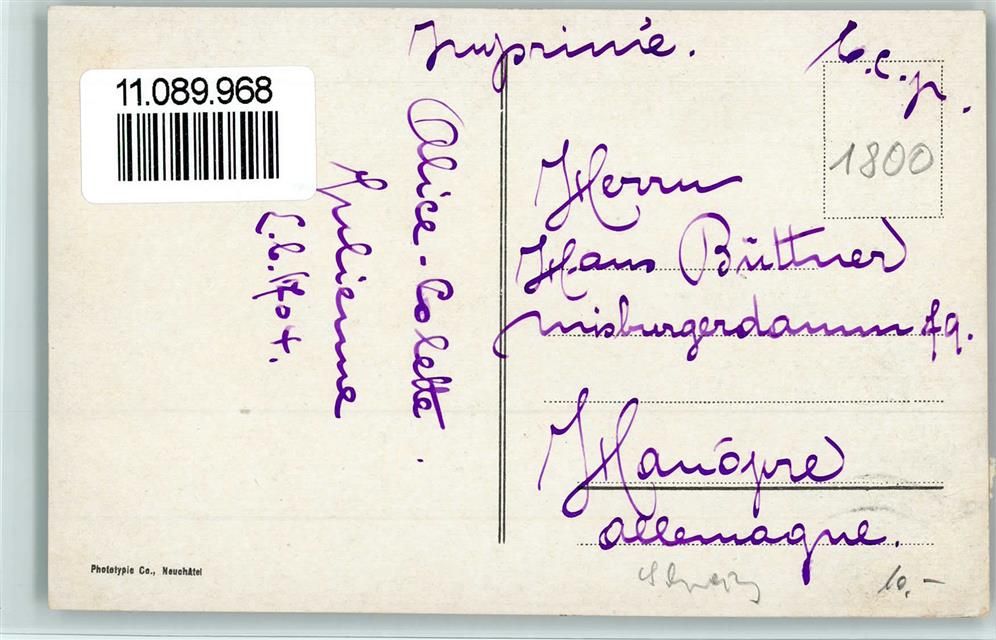 11.089.968
Imprimé.
t.c.p.
1800
Alice-Colette.
Julienne
Herrn
Hans Büttner
Misburgerdamm 79.
Hanóvre
Allemagne.
Phototypie Co., Neuchâtel
10.-